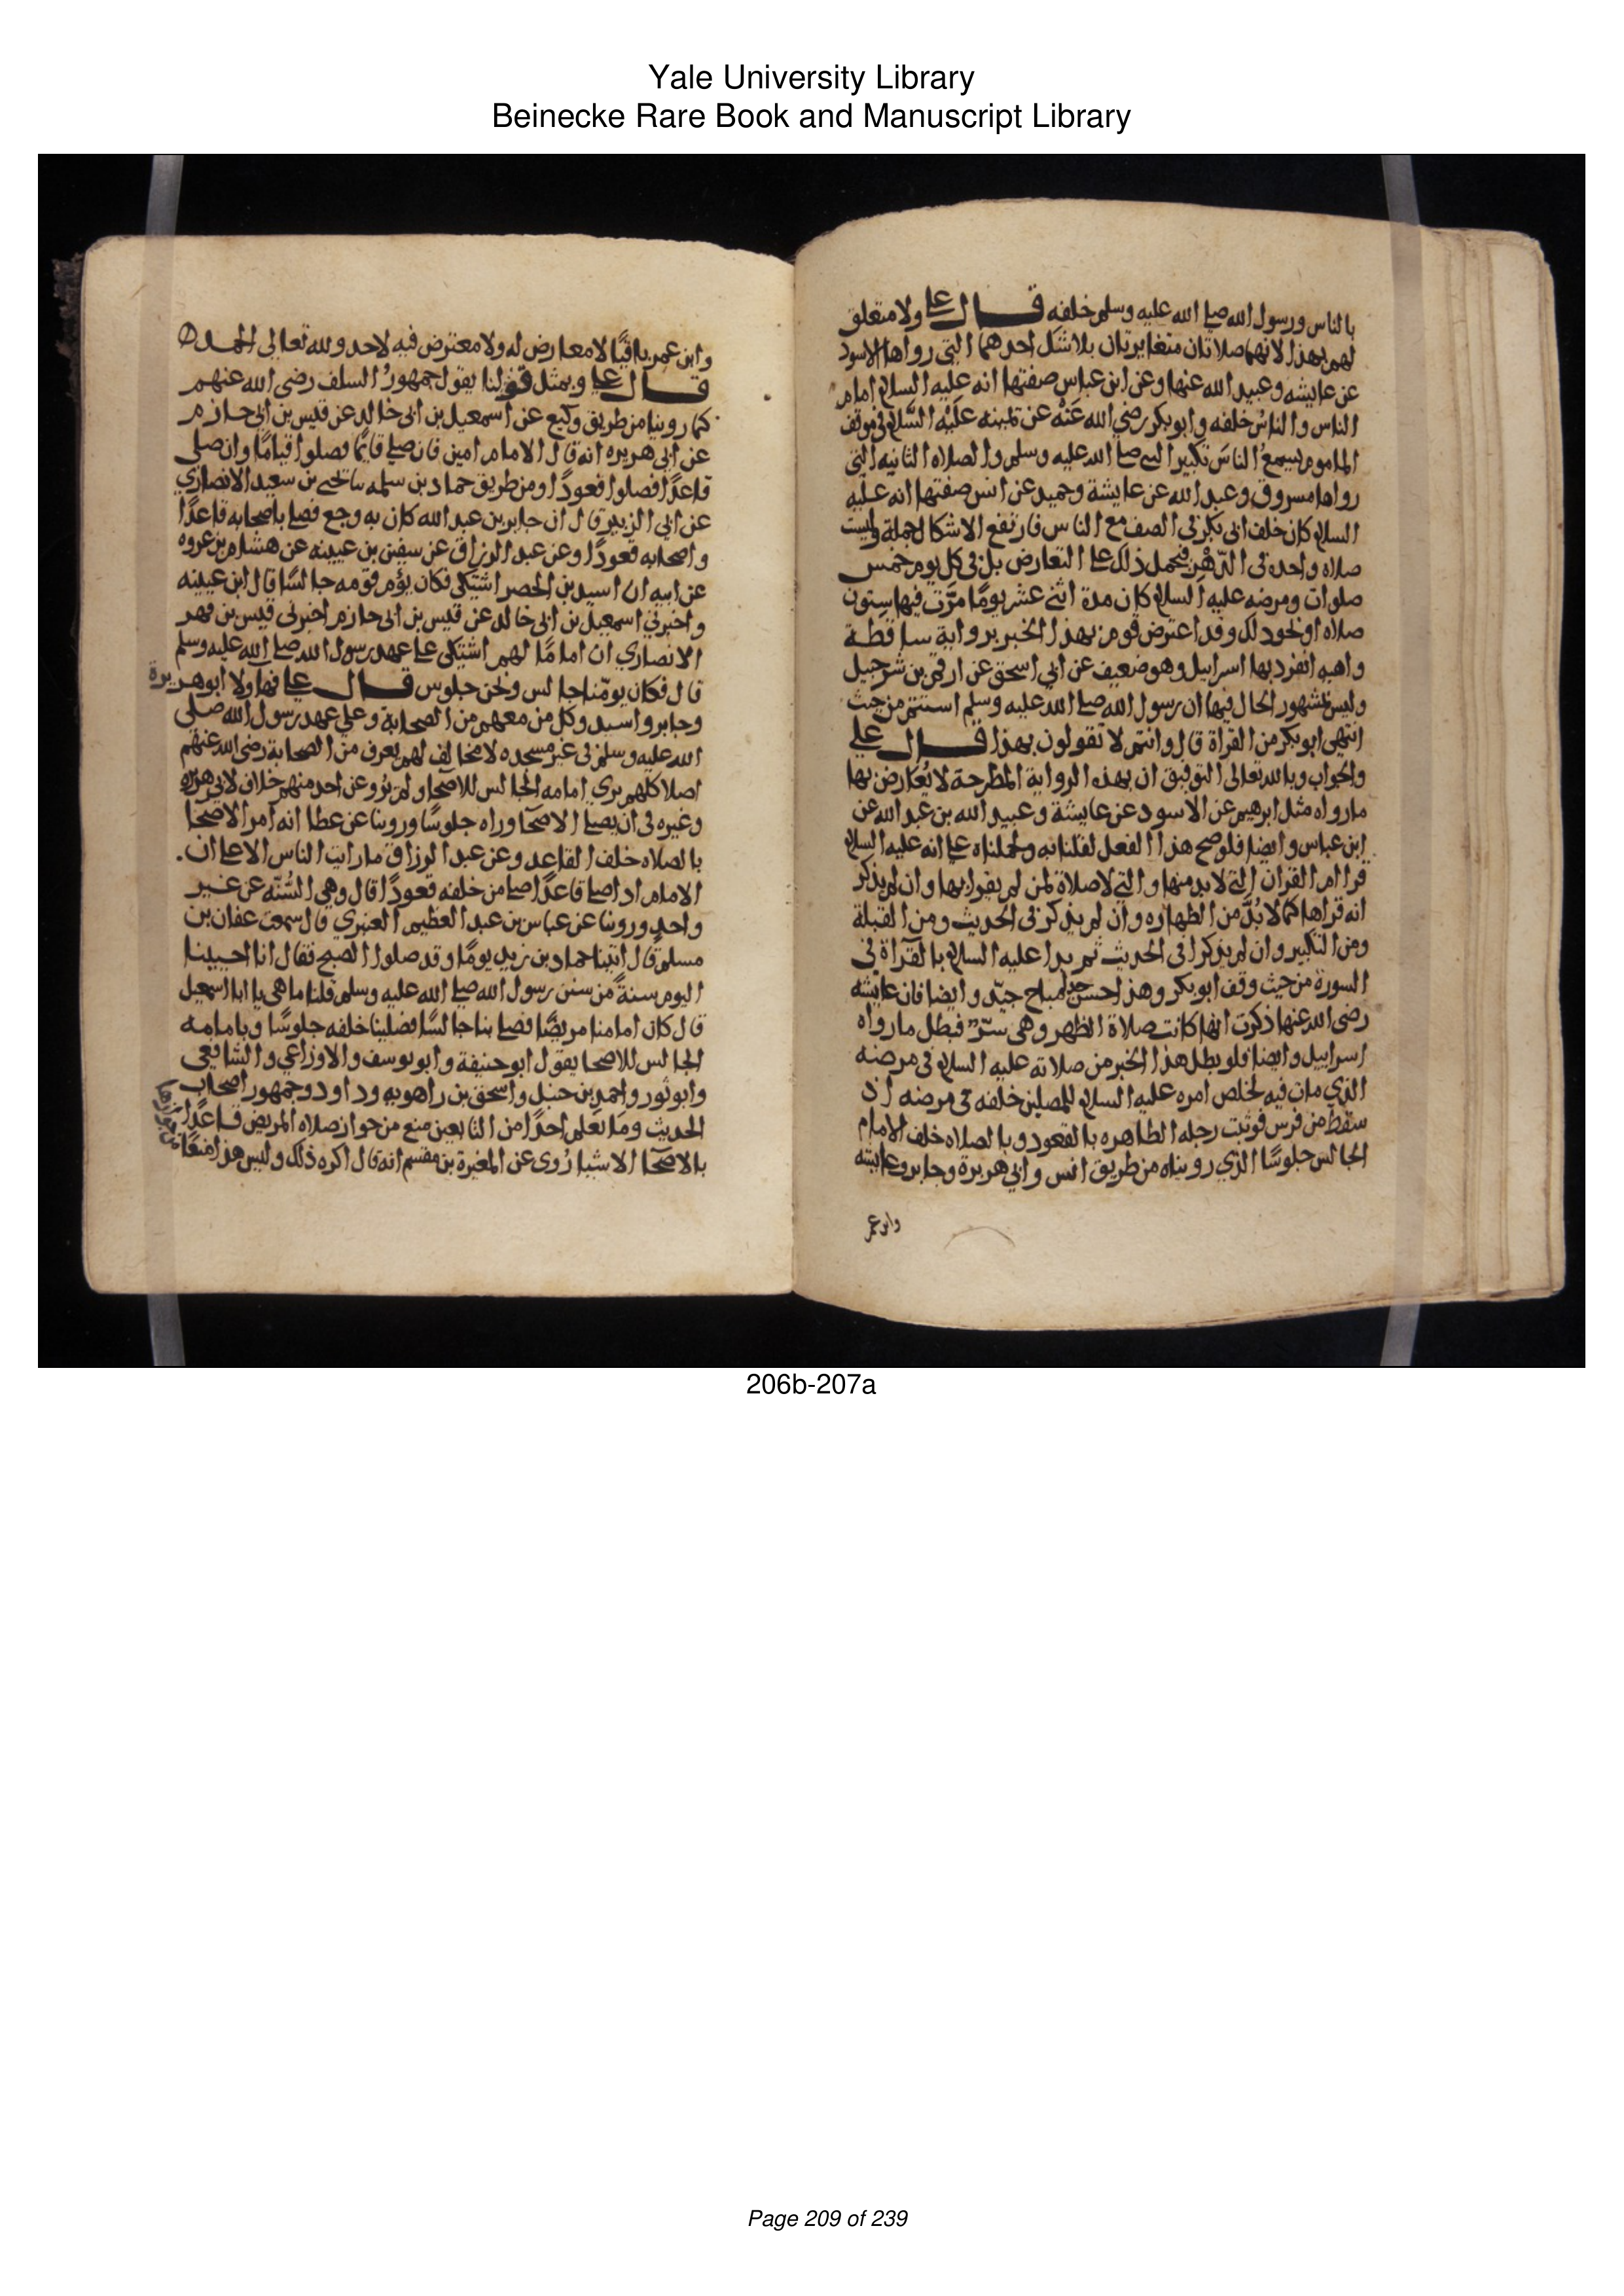 Yale University Library
Beinecke Rare Book and Manuscript Library
بالناس ورسول الله صلى الله عليه وسلم خلفه قال علي ولا متعلق
لهم بهذا لانهما صلاتان متغايرتان بلا شك احدهما التي رواها الاسود
عن عايشه وعبيد الله عنها وعن ابن عباس صفتها انه عليه السلام امام
الناس والناس خلفه وابو بكر رضي الله عنه عن يمينه عليه السلام في موقف
الماموم يسمع الناس تكبير النبي صلى الله عليه وسلم والصلاه الثانيه التي
رواها مسروق وعبد الله عن عايشة وحميد عن انس صفتها انه عليه
السلام كان خلف ابي بكر في الصف مع الناس فارتفع الاشكال جملة وليست
صلاه واحده في الدهر فيحمل ذلك على التعارض بل في كل يوم خمس
صلوات ومرضه عليه السلام كان مدة اثني عشر يوما مرت فيها ستون
صلاه او نحو ذلك وقد اعترض قوم بهذا الخبر برواية ساقطة
واهيه انفرد بها اسراييل وهو ضعيف عن ابي اسحق عن ارقم بن شرحبيل
وليس بمشهور الحال فيها ان رسول الله صلى الله عليه وسلم استتم من حيث
انتهى ابو بكر من القراة قال وانتم لا تقولون بهذا قال علي
والجواب وبالله تعالى التوفيق ان بهذه الرواية المطرحة لا يعارض بها
ما رواه مثل ابرهيم عن الاسود عن عايشة وعبيد الله بن عبد الله عن
ابن عباس وايضا فلو صح هذا الفعل لقلنا به ولحملناه على انه عليه السلام
قرا ام القران التي لا بد منها والتي لا صلاة لمن لم يقرا بها وان لم يذكر
انه قراها كما لا بد من الطهاره وان لم يذكر في الحديث ومن القبلة
ومن التكبير وان لم يذكرا في الحديث ثم بدا عليه السلام بالقراة في
السورة من حيث وقف ابو بكر وهذا حسن جدا مباح جيد وايضا فان عايشه
رضي الله عنها ذكرت انها كانت صلاة الظهر وهي سر فبطل ما رواه
اسراييل وايضا فلو بطل هذا الخبر من صلاته عليه السلام في مرضه
الذي مات فيه لخلص امره عليه السلام للمصلين خلفه في مرضه اذ
سقط من فرس فوثيت رجله الطاهره بالقعود وبالصلاه خلف الامام
الجالس جلوسا الذي رويناه من طريق انس وابي هريرة وجابر وعايشه
وابن عمر
وابن عمر باقيا لا معارض له ولا معترض فيه لاحد ولله تعالى الحمد
قال علي وبمثل قولنا يقول جمهور السلف رضي الله عنهم
كما روينا من طريق وكيع عن اسمعيل بن ابي خالد عن قيس بن ابي حازم
عن ابي هريره انه قال الامام امين فان صلى قايما فصلوا قياما وان صلى
قاعدا فصلوا قعودا ومن طريق حماد بن سلمه نا يحيى بن سعيد الانصاري
عن ابي الزبير قال ان جابر بن عبد الله كان به وجع فصلى باصحابه قاعدا
واصحابه قعودا وعن عبد الرزاق عن سفين بن عيينه عن هشام بن عروه
عن ابيه ان اسيد بن الحضير اشتكى فكان يؤم قومه جالسا قال ابن عيينه
واخبرني اسمعيل بن ابي خالد عن قيس بن ابي حازم اخبرني قيس بن قهر
الانصاري ان اماما لهم اشتكى على عهد رسول الله صلى الله عليه وسلم
قال فكان يومنا جالس ونحن جلوس قال علي فهاولا ابو هريرة
وجابر واسيد وكل من معهم من الصحابة وعلى عهد رسول الله صلى
الله عليه وسلم في غير مسجده لا مخالف لهم يعرف من الصحابة رضي الله عنهم
اصلا كلهم يرى امامه الجالس للاصحا ولم يرو عن احد منهم خلاف لابي هريره
وغيره في ان يصلي الاصحا وراه جلوسا وروينا عن عطا انه امر الاصحا
بالصلاه خلف القاعد وعن عبد الرزاق ما رايت الناس الا على ان
الامام اذا صلى قاعدا صلى من خلفه قعودا قال وهي السنه عن غير
واحد وروينا عن عباس بن عبد العظيم العنبري قال سمعت عفان بن
مسلم قال اتينا حماد بن زيد يوما وقد صلوا الصبح فقال انا احيينا
اليوم سنة من سنن رسول الله صلى الله عليه وسلم قلنا ما هي يا ابا اسمعيل
قال كان امامنا مريضا فصلى بنا جالسا فصلينا خلفه جلوسا وبامامه
الجالس للاصحا يقول ابو حنيفة وابو يوسف والاوزاعي والشافعي
وابو ثور واحمد بن حنبل واسحق بن راهويه وداود وجمهور اصحاب
الحديث وما نعلم احدا من التابعين منع من جواز صلاه المريض قاعدا
بالاصحا الا شيا روي عن المغيرة بن مقسم انه قال اكره ذلك وليس هذا منعا
206b-207a
Page 209 of 239